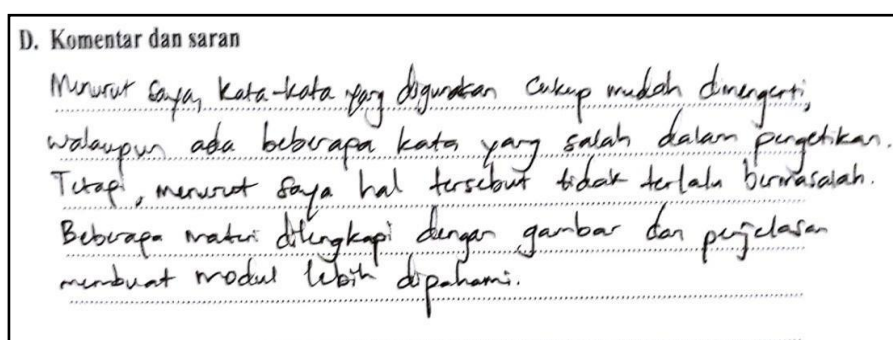 D. Komentar dan saran
Menurut saya, kata-kata yang digunakan cukup mudah dimengerti,
walaupun ada beberapa kata yang salah dalam pengetikan.
Tetapi, menurut saya hal tersebut tidak terlalu bermasalah.
Beberapa materi dilengkapi dengan gambar dan penjelasan
membuat modul lebih dipahami.